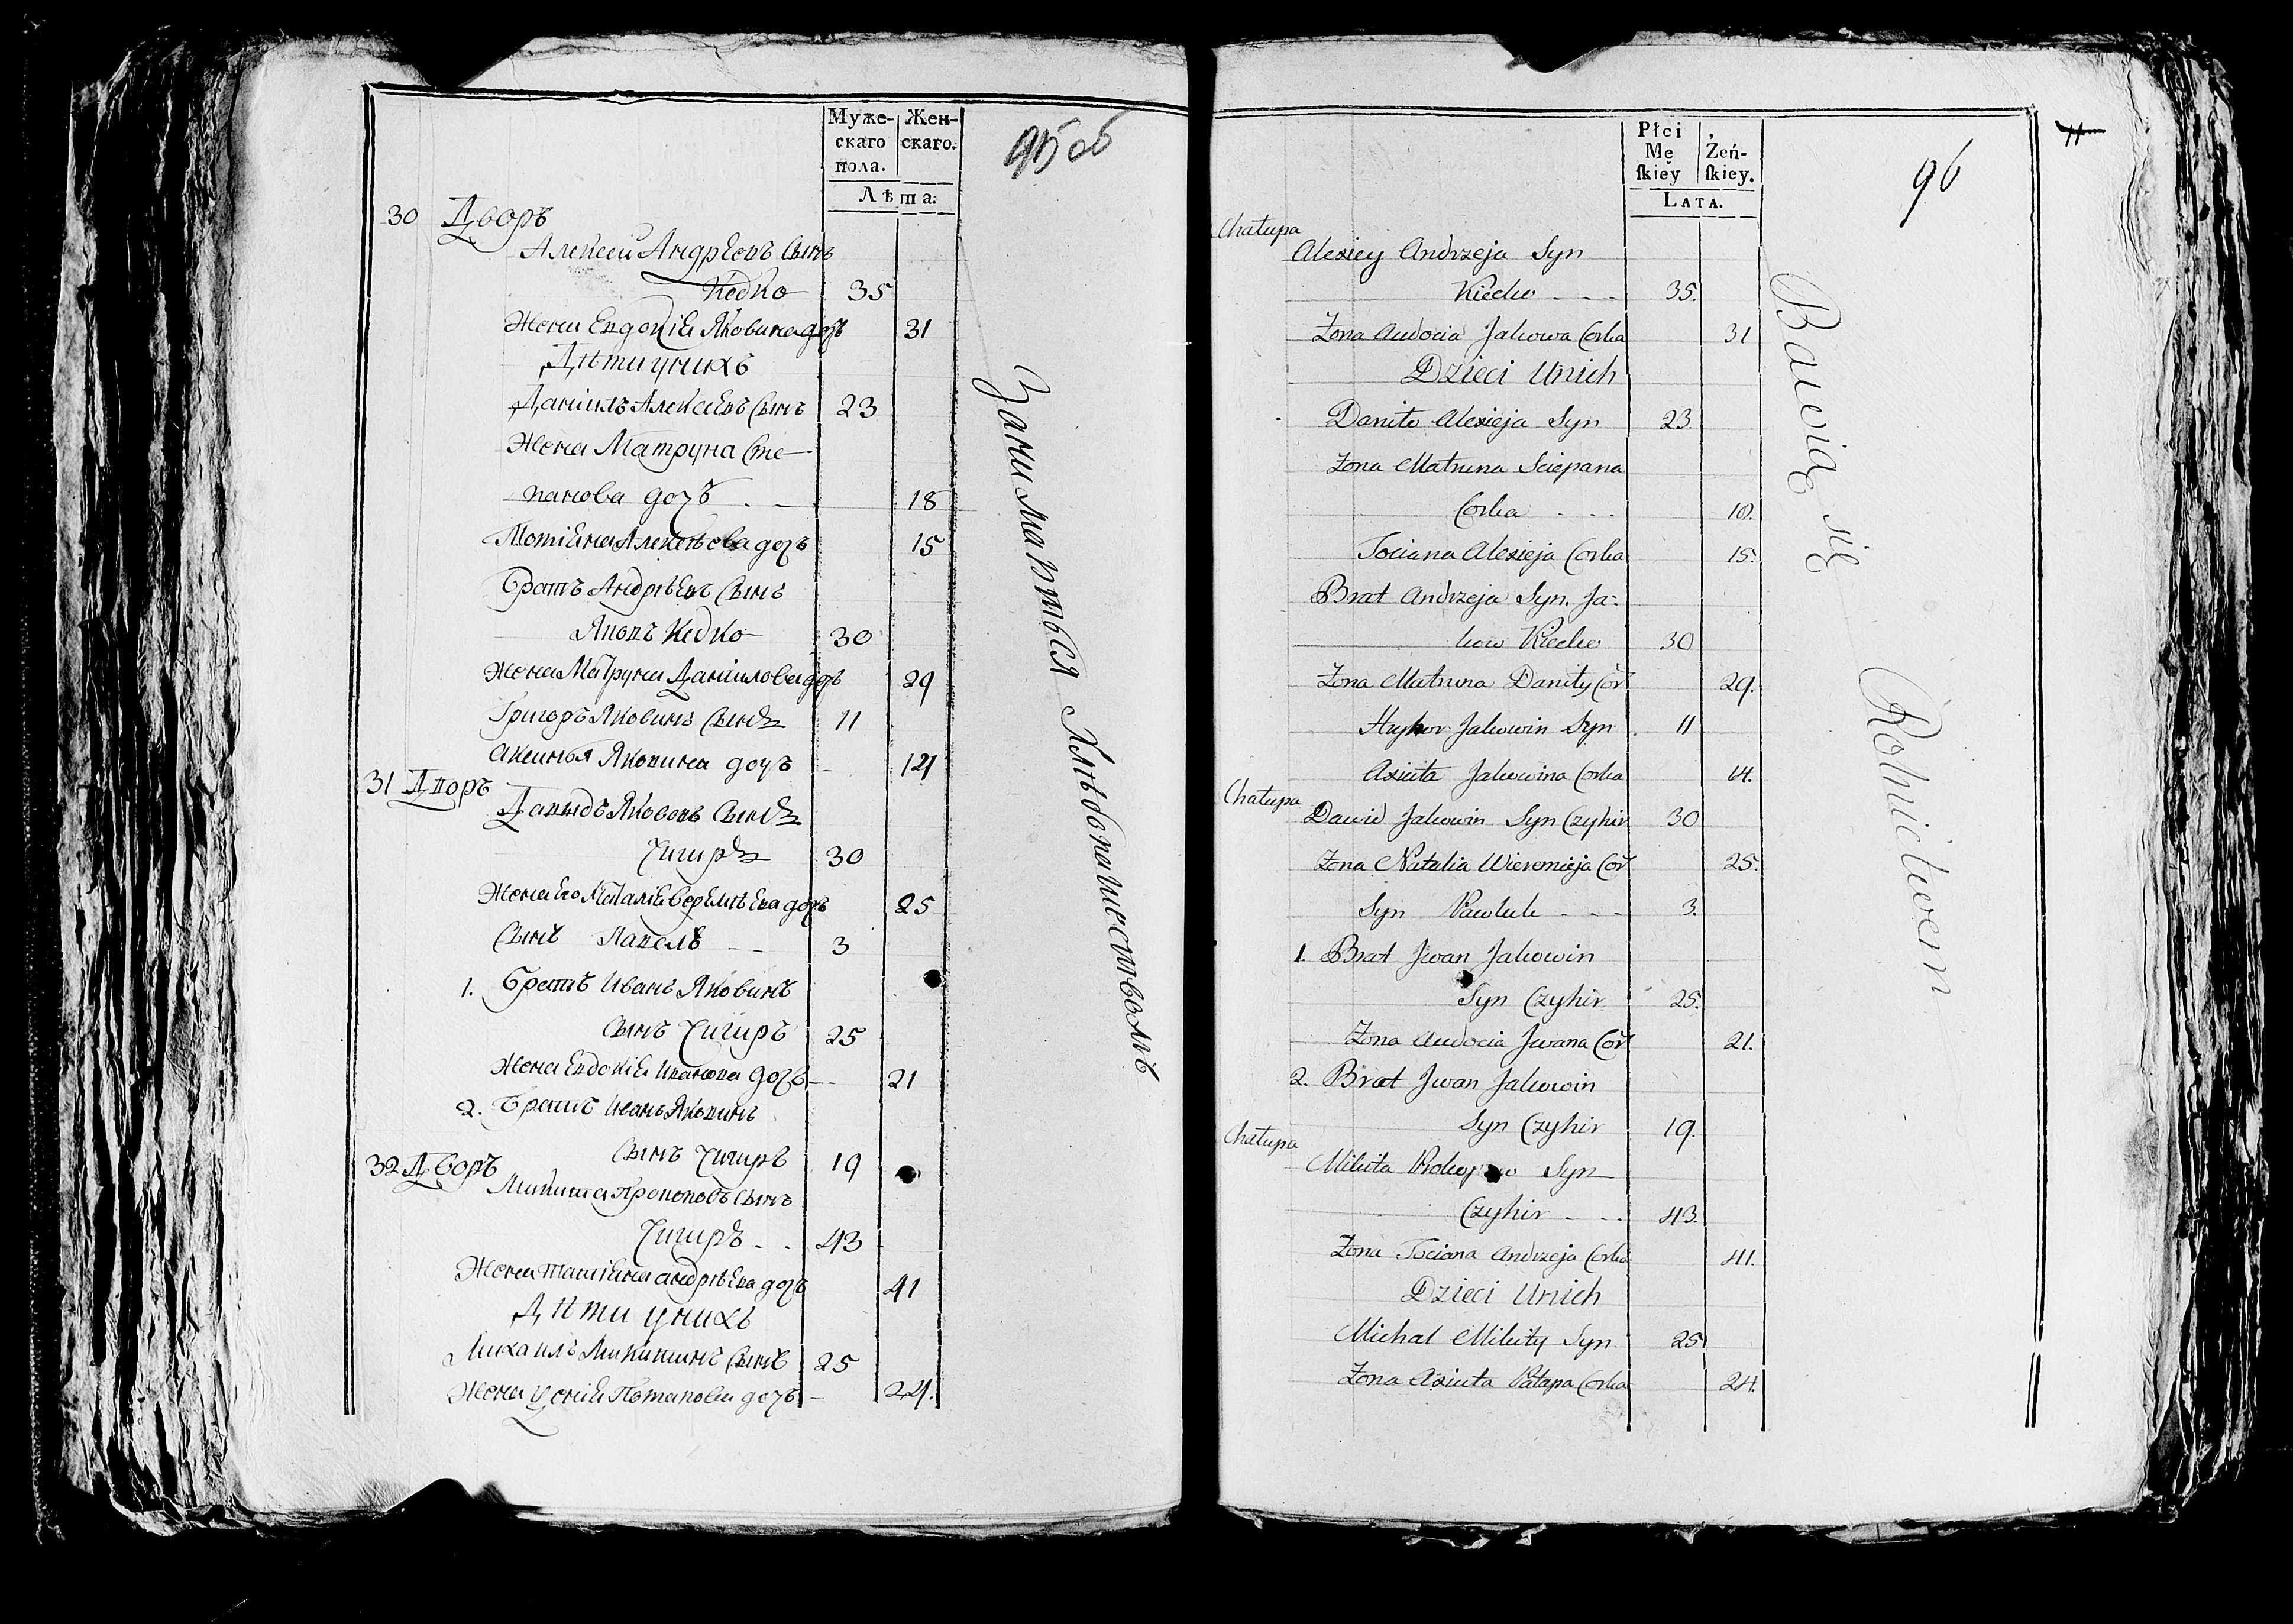 Муже-
скаго
пола.
Жен-
скаго.
Лѣта:
95 об
30 Дворъ
Алексей Андрѣевъ Сынъ
Кедко 35
Жена Евдокія Яковина дочь 31
Дѣти уних
Данилъ Алексеевъ Сынъ 23
Жена Матруна Сте-
панова дочь 18
Алексѣева дочь 15
Братъ Андрѣевъ Сынъ
Яковъ Кедко 30
Жена Матруна Данилова дочь 29
Григоръ Яковинъ Сынъ 11
Аксинья Яковина дочъ 14
31 Дворъ
Давыдъ Яковвъ Сынъ
Чигиръ 30
Жена его Наталіе Веремѣева дочь 25
Сынъ Павелъ 3
1. Братъ Иванъ Яковинъ
Сынъ Чигиръ 25
Жена Евдокія Иванова дочь 21
2. Братъ Иванъ Яковинъ
Сынъ Чигиръ 19
32 Дворъ
Микита Прокоповъ Сынъ
Чигиръ 43
Жена Татіяна Андрѣева дочь 41
Дѣти уних
Михаилъ Микитинъ Сынъ 25
Жена Потапова дочь 24.
Занимаються Хлѣбопашествомъ
Płci
Mę
ſkiey
Żeń-
ſkiey.
LATA.
96
11
Chałupa
Alexiey Andrzeja Syn
Kiedko 35.
Żona Audocia Jakowa Corka 31
Dzieci Unich
Daniło Alexieja Syn 23
Żona Matruna Sciepana
Corka 18.
Tociana Alexieja Corka 15.
Brat Andrzeja Syn. Ja-
kow Kiedko 30
Żona Matruna Daniły Cor 29.
Hryhor Jakowin Syn 11
Axiuta Jakowina Corka 14.
Chałupa
Dawid Jakowin Syn Czyhir 30
Żona Natalia Wieremieja Cor 25.
Syn Pawluk 3.
1. Brat Jwan Jakowin
Syn Czyhir 25.
Żona Audocia Jwana Cor 21.
2. Brat Jwan Jakowin
Syn Czyhir 19.
Chałupa
Mikita Prokopow Syn
Czyhir 43.
Żona Tociana Andrzeja Corka 41.
Dzieci Unich
Michał Mikity Syn 25
Żona Axiuta Patapa Corka 24.
Bawią się Rolnictwem